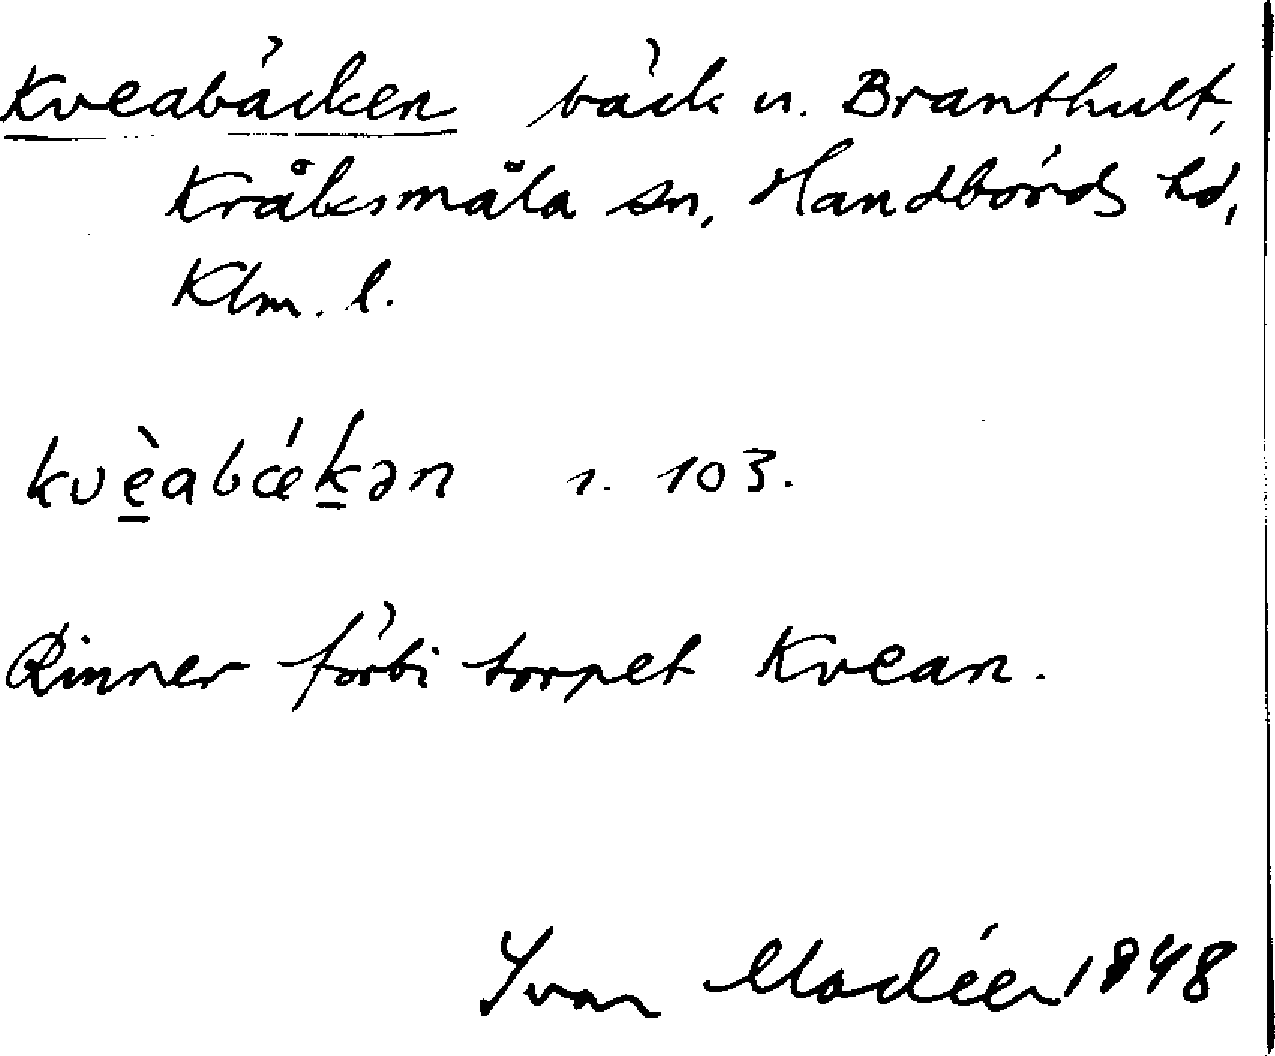 Kveabäcken bäck u. Branthult,
Kråksmåla sn, Handbörds hd,
Klm. l.
kvèabǽkən 1. 103.
Rinner förbi torpet Kvean.
Ivar Modéer 1948